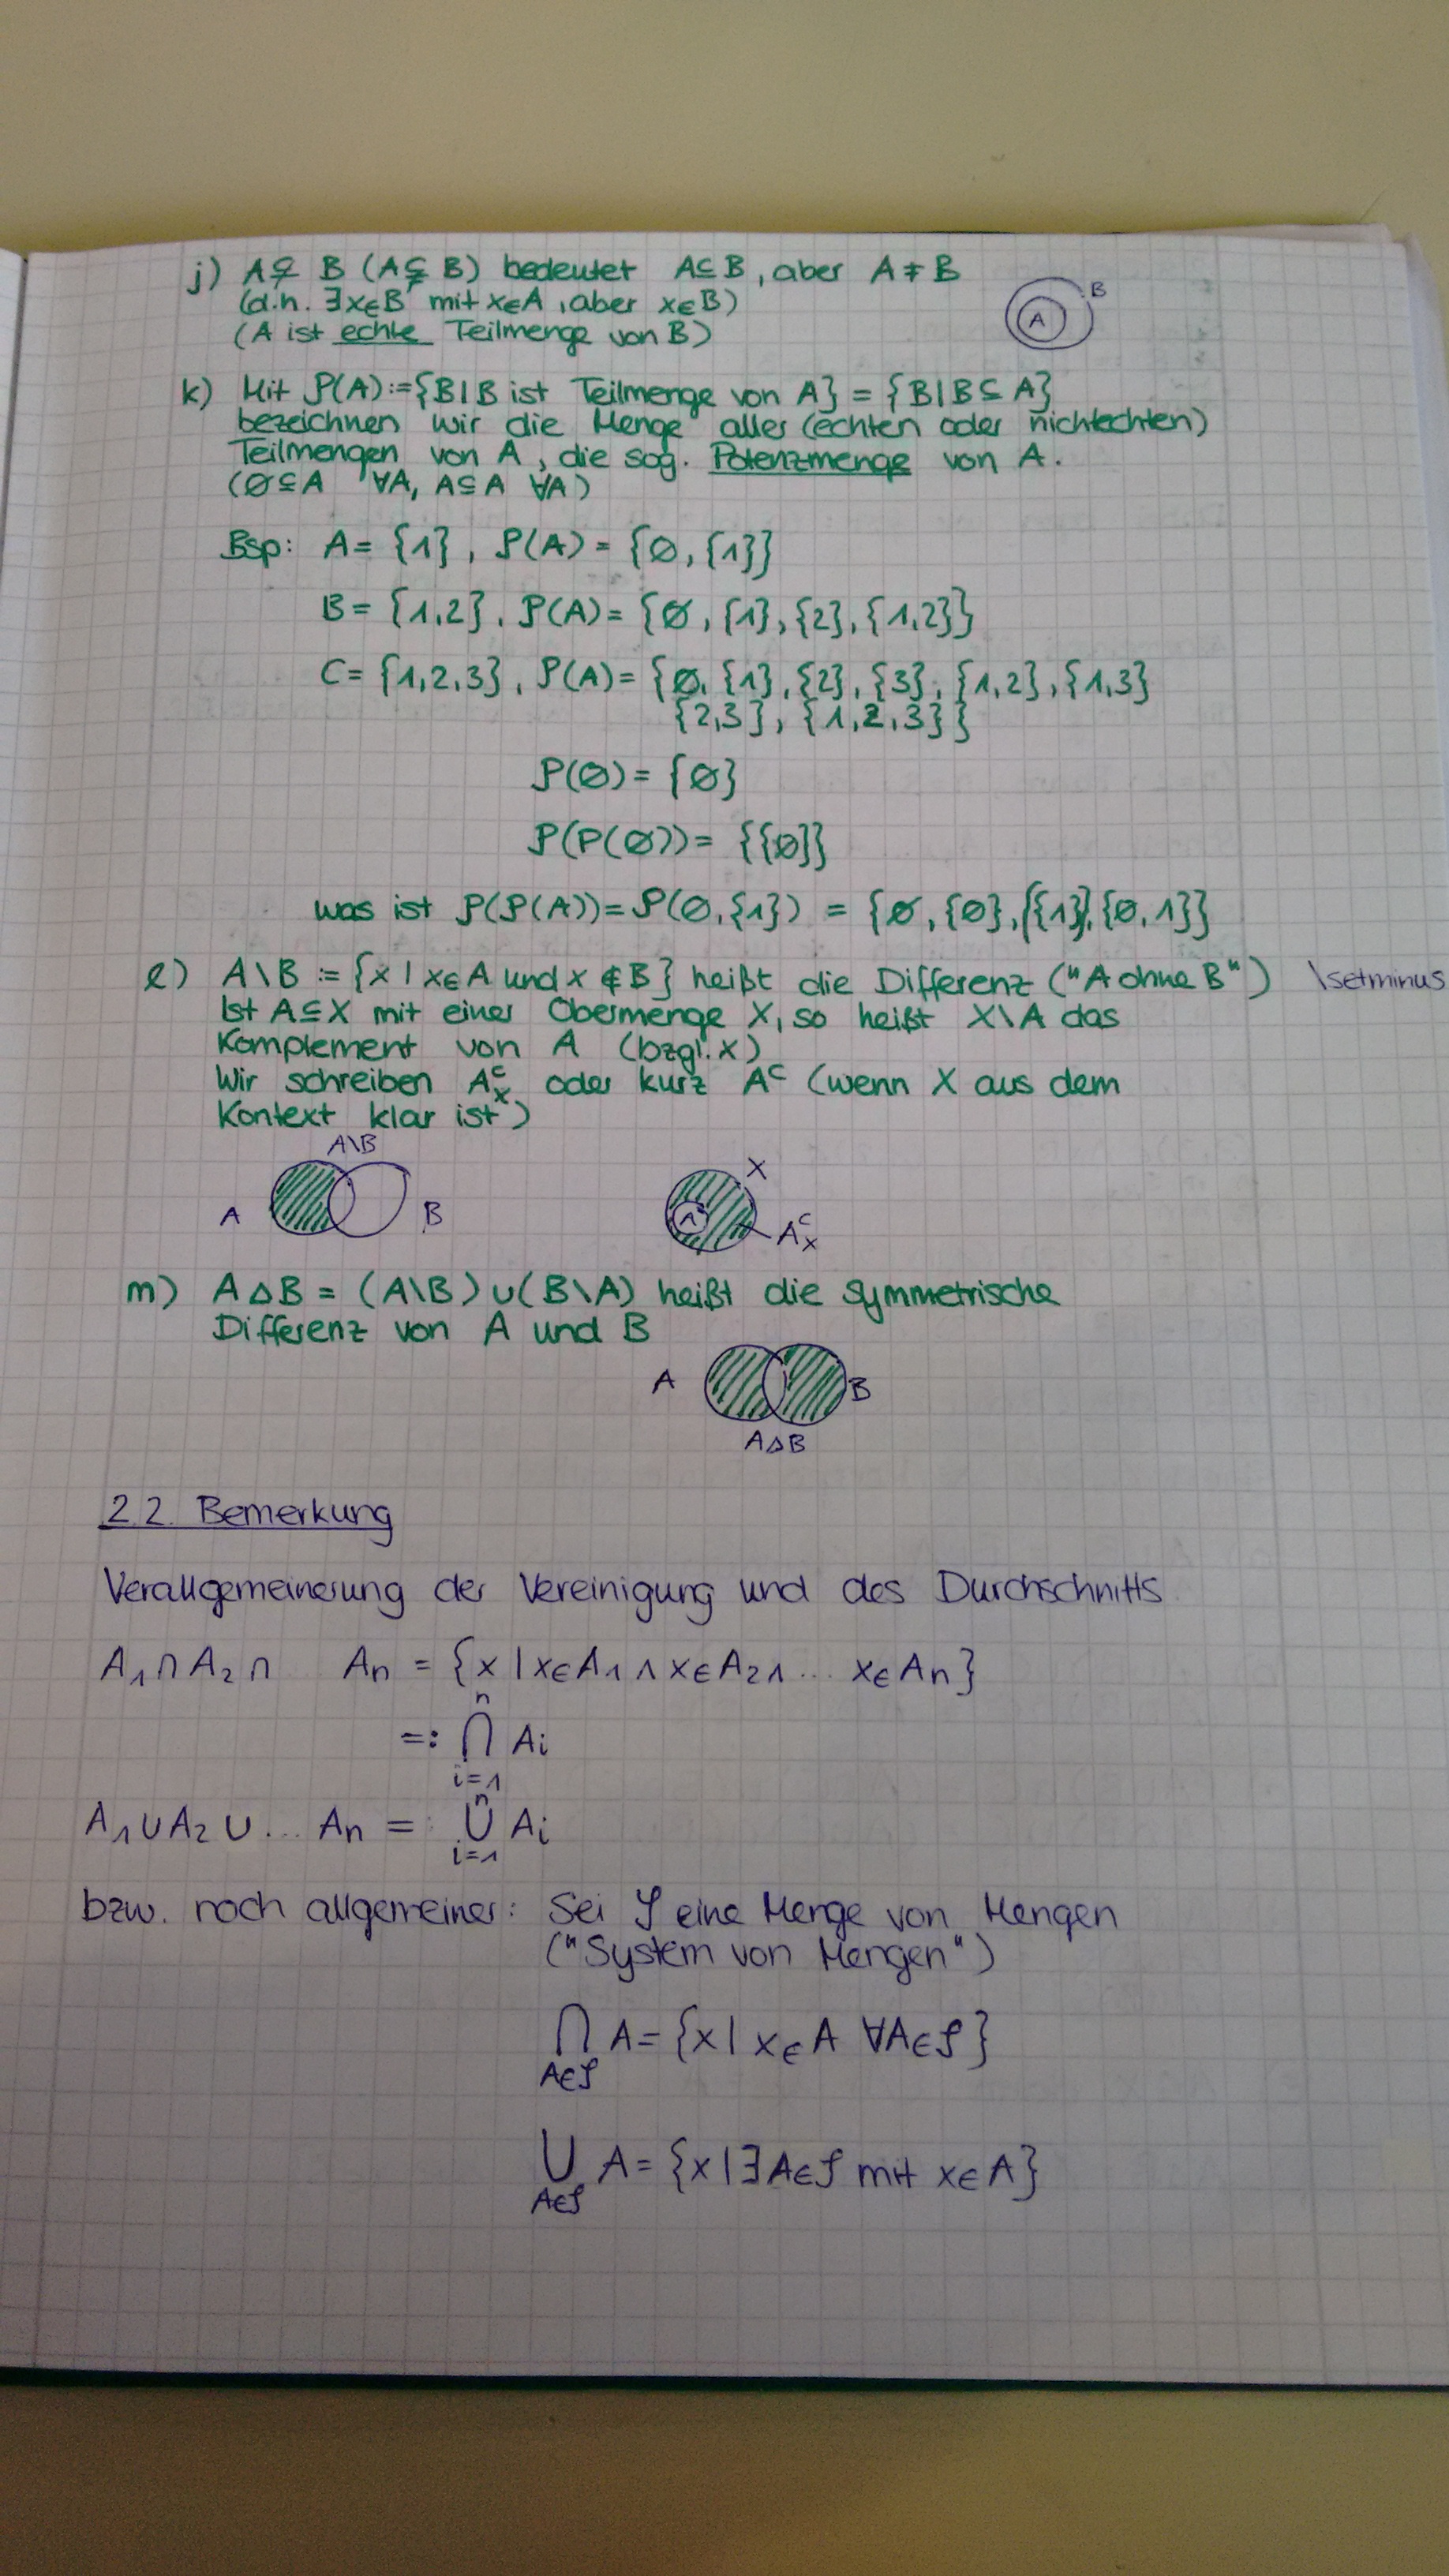 j) A⊊ B (A⊊ B) bedeutet A⊆B, aber A ≠ B
(d.h. ∃x∈B mit x∈A, aber x∈B)
(A ist echte Teilmenge von B)
A B
k) Mit P(A):={B|B ist Teilmenge von A} = {B|B⊆A}
bezeichnen wir die Menge aller (echten oder nichtechten)
Teilmengen von A, die sog. Potenzmenge von A.
(∅⊆A ∀A, A⊆A ∀A)
Bsp: A= {1}, P(A) = {∅, {1}}
B= {1,2}, P(A)= {∅, {1}, {2}, {1,2}}
C= {1,2,3}, P(A)= {∅, {1}, {2}, {3}, {1,2}, {1,3}
{2,3}, {1,2,3}}
P(∅)= {∅}
P(P(∅))= {{∅}}
was ist P(P(A))=P(∅,{1}) = {∅, {∅}, {{1}}, {∅, 1}}
l) A\B := {x | x∈A und x ∉B} heißt die Differenz ("A ohne B") \setminus
Ist A⊆X mit einer Obermenge X, so heißt X\A das
Komplement von A (bzgl. X)
Wir schreiben Aᶜₓ oder kurz Aᶜ (wenn X aus dem
Kontext klar ist)
A\B
A B
X
A Aᶜₓ
m) A△B = (A\B)∪(B\A) heißt die symmetrische
Differenz von A und B
A B
A△B
2.2. Bemerkung
Verallgemeinerung der Vereinigung und des Durchschnitts
A₁∩A₂∩ Aₙ = {x | x∈A₁ ∧ x∈A₂∧... x∈Aₙ}
n
=: ∩ Ai
i=1
n
A₁∪A₂∪... Aₙ = ∪ Ai
i=1
bzw. noch allgemeiner: Sei 𝒮 eine Menge von Mengen
("System von Mengen")
∩ A= {x | x∈A ∀A∈𝒮}
A∈𝒮
∪ A= {x | ∃A∈𝒮 mit x∈A}
A∈𝒮